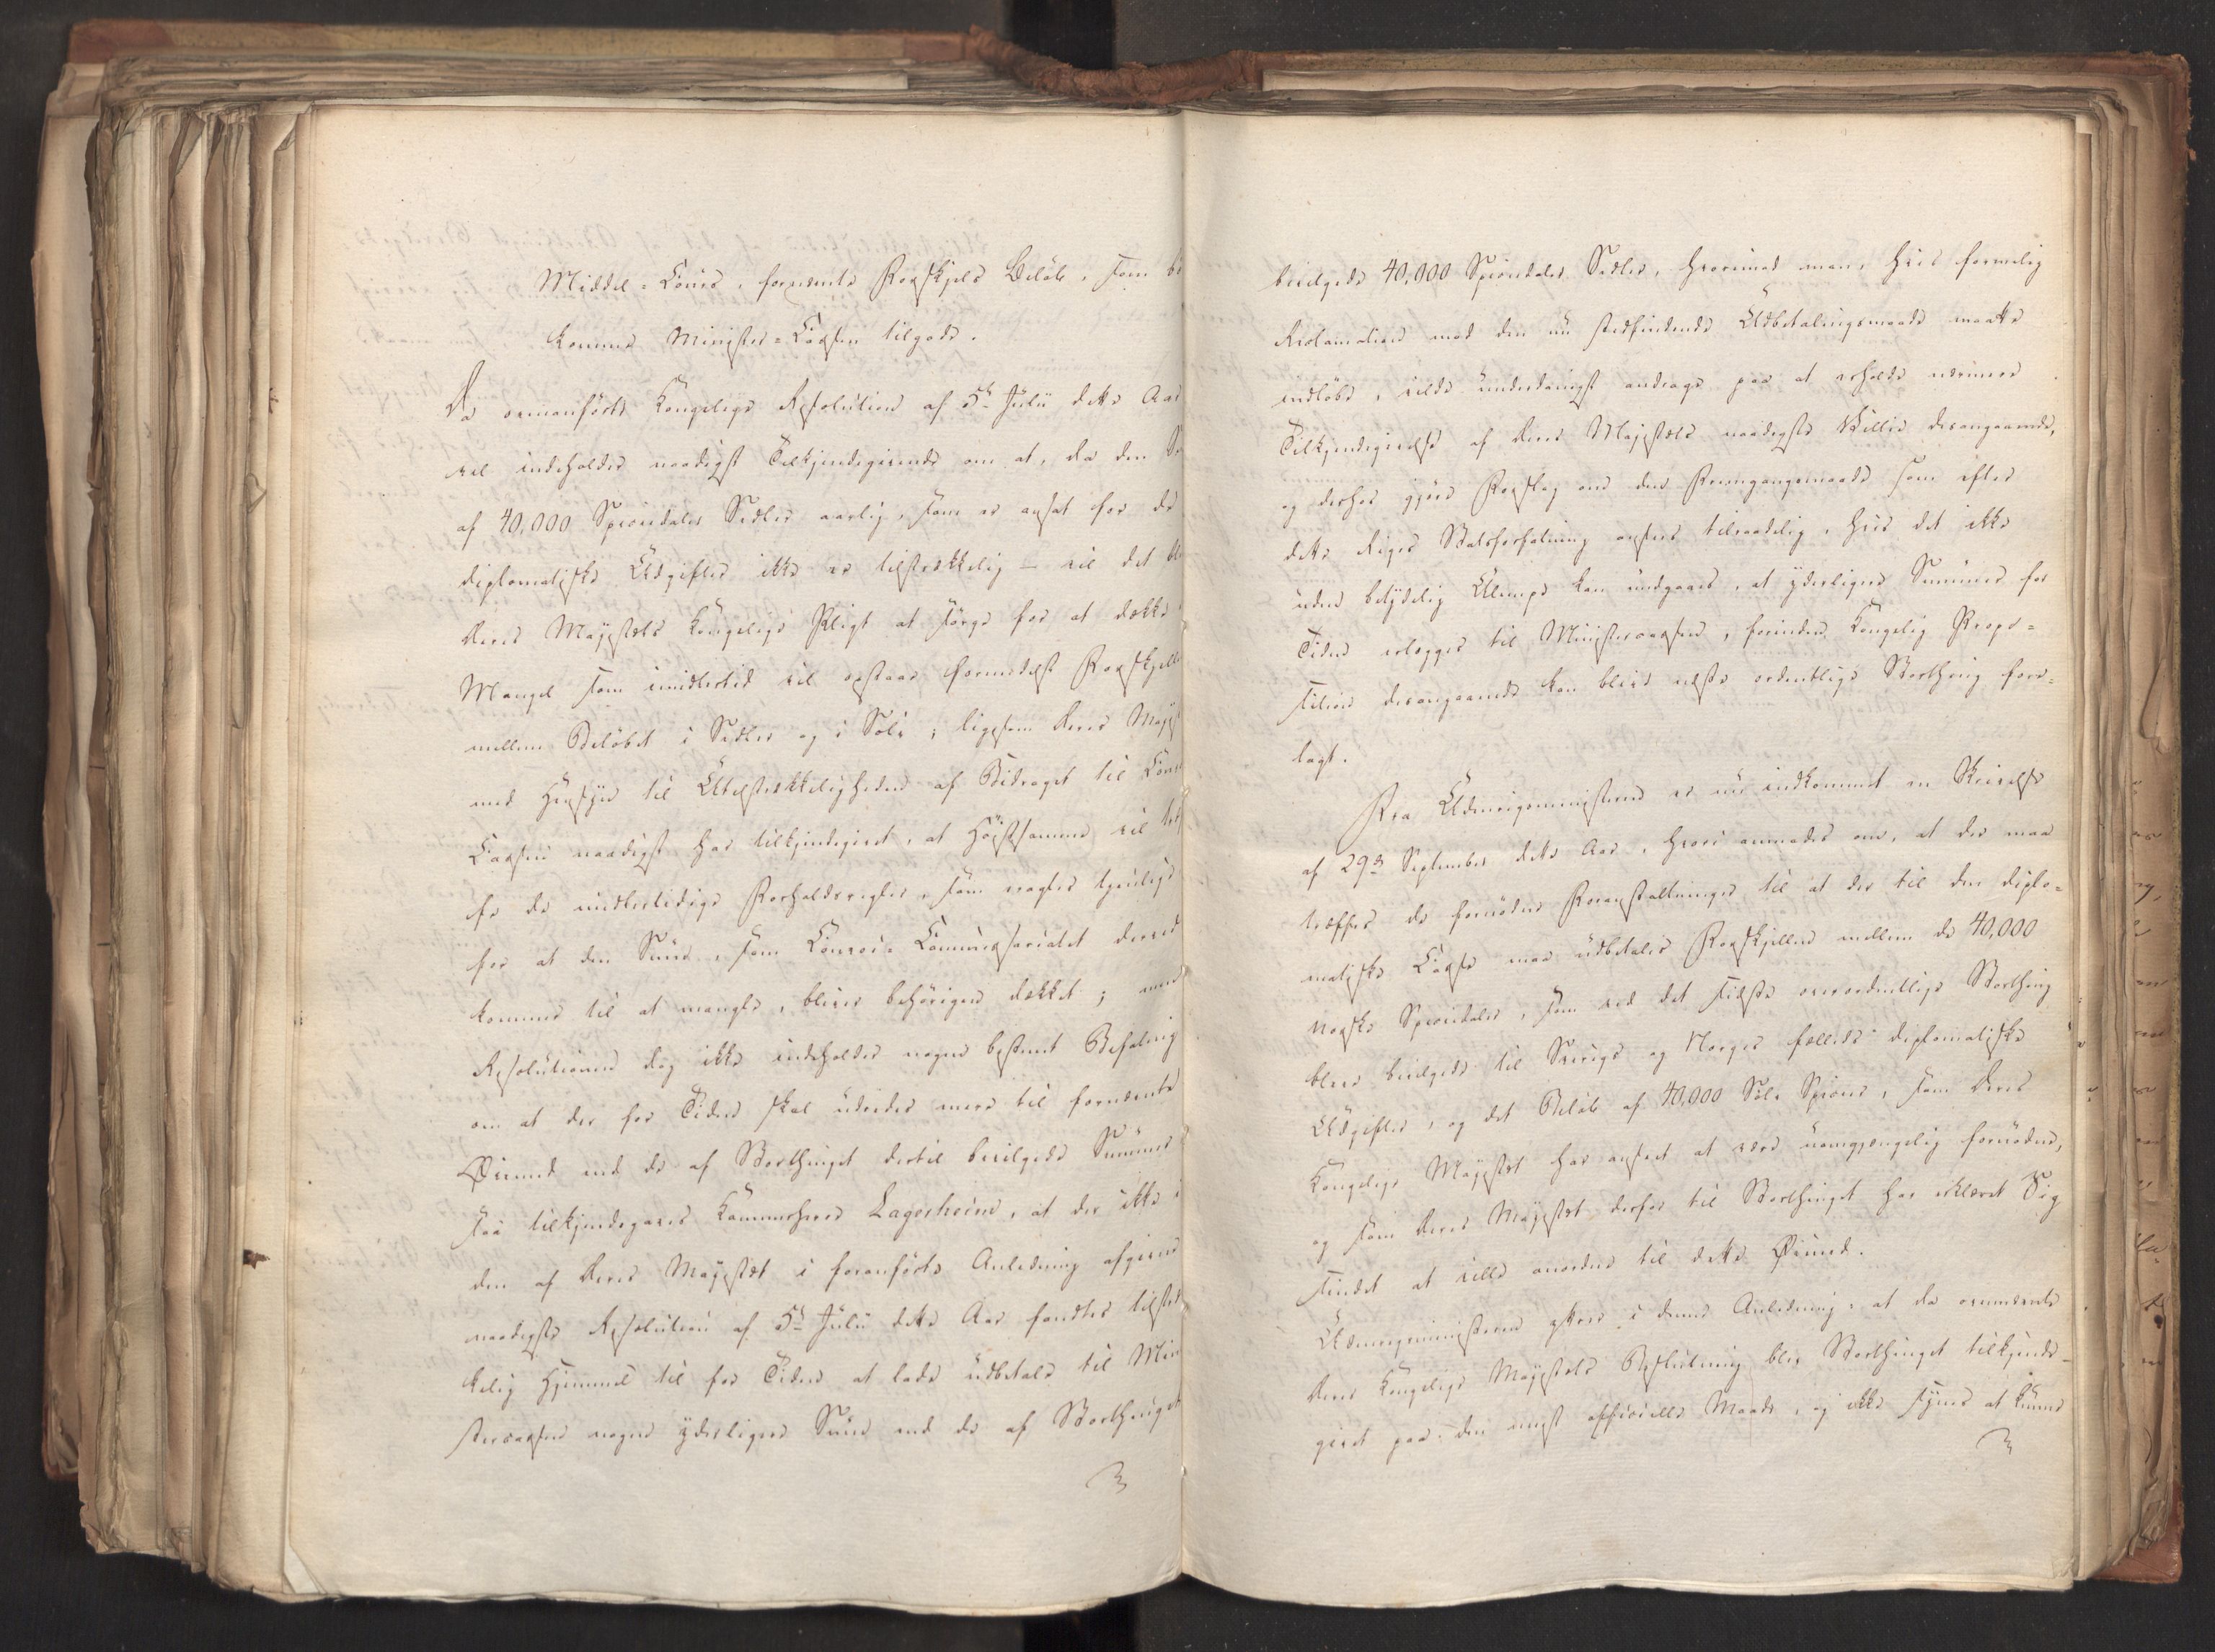 Middel-Cours, fornævnte Forskjels Beløb, som bö
kommer Minister-Cassen tilgode.
Da ovenanførte Kongelige Resolution af 5te Julii dette Aar
vel indeholder naadigst Tilkjendegivende om at, da den
af 40,000 Speciedaler Sedler aarlig, som er ansat for de
diplomatiske Udgifter ikke er tilstrækkelig – vil det
Deres Majestæts Kongelige Pligt at sørge for at dække
Mangel som imidlertid vil opstaae formedelst Forskjellen
mellem Beløbet i Sedler og i Sølv; ligesom Deres
med Hensyn til Utilstrækkeligheden af Bidraget til
Cassen naadigst har tilkjendegivet, at Høistsamme vil
fe de midlertidige Forholdsregler, som ansees tjenlige
for at den Sum, som Convoi-Commissariatet derved
kommer til at mangle, bliver behørigen dækket; men
Resolutionen dog ikke indeholder nogen bestemt Befaling
om at der for Tiden skal udredes mere til fornævnte
Øiemed end de af Storthinget dertil bevilgede Summer
saa tilkjendegaves Kammerherre Lagerheim, at der ikke i
den af Deres Majestæt i foranførte Anledning afgivne
naadigste Resolution af 5te Julii dette Aar fandtes tilstræk
kelig Hjemmel til for Tiden at lade udbetale til Min
stercassen nogen yderligere Sum end de af Storthinget
bevilgede 40,000 Speciedaler Sedler, hvorimod man, hvis formelig
Reclamation mod den nu stedfindende Udbetalingsmaade maatte
indløbe, vilde underdanigst andrage paa at erholde nærmere
Tilkjendegivelse af Deres Majestæts naadigste Villie desangaaende,
og derhos gjøre Forslag om den Fremgangsmaade som efter
dette Riges Statsforfatning ansees tilraadelig, hvis det ikke
uden betydelig Ulempe kan undgaaes, at yderligere Summer for
Tiden erlægges til Ministercassen, forinden Kongelig Propo-
sition desangaaende kan blive næste ordentlige Storthing fore-
lagt.
Fra Udenrigsministeren er nu indkommet en Skrivelse
af 29de September dette Aar, hvori anmodes om, at der maa
træffes de fornødne Foranstaltninger til at der til den diplo-
matiske Casse maa udbetales Forskjellen mellem de 40,000
norske Speciedaler, som ved det sidste overordentlige Storthing
bleve bevilgede til Sverigs og Norges fælleds diplomatiske
Udgifter, og det Beløb af 40,000 Sølv Species, som Deres
Kongelige Majestæt har anseet at være uomgjængelig fornøden,
og som Deres Majestæt derfor til Storthinget har erklæret Sig
sindet at ville anordne til dette Øiemed.
Udenrigsministeren yttrer i denne Anledning: at da ovennævnte
Deres Kongelige Majestæts Beslutning blev Storthinget tilkjende-
givet paa den meest officielle Maade, og ikke synes at kunne